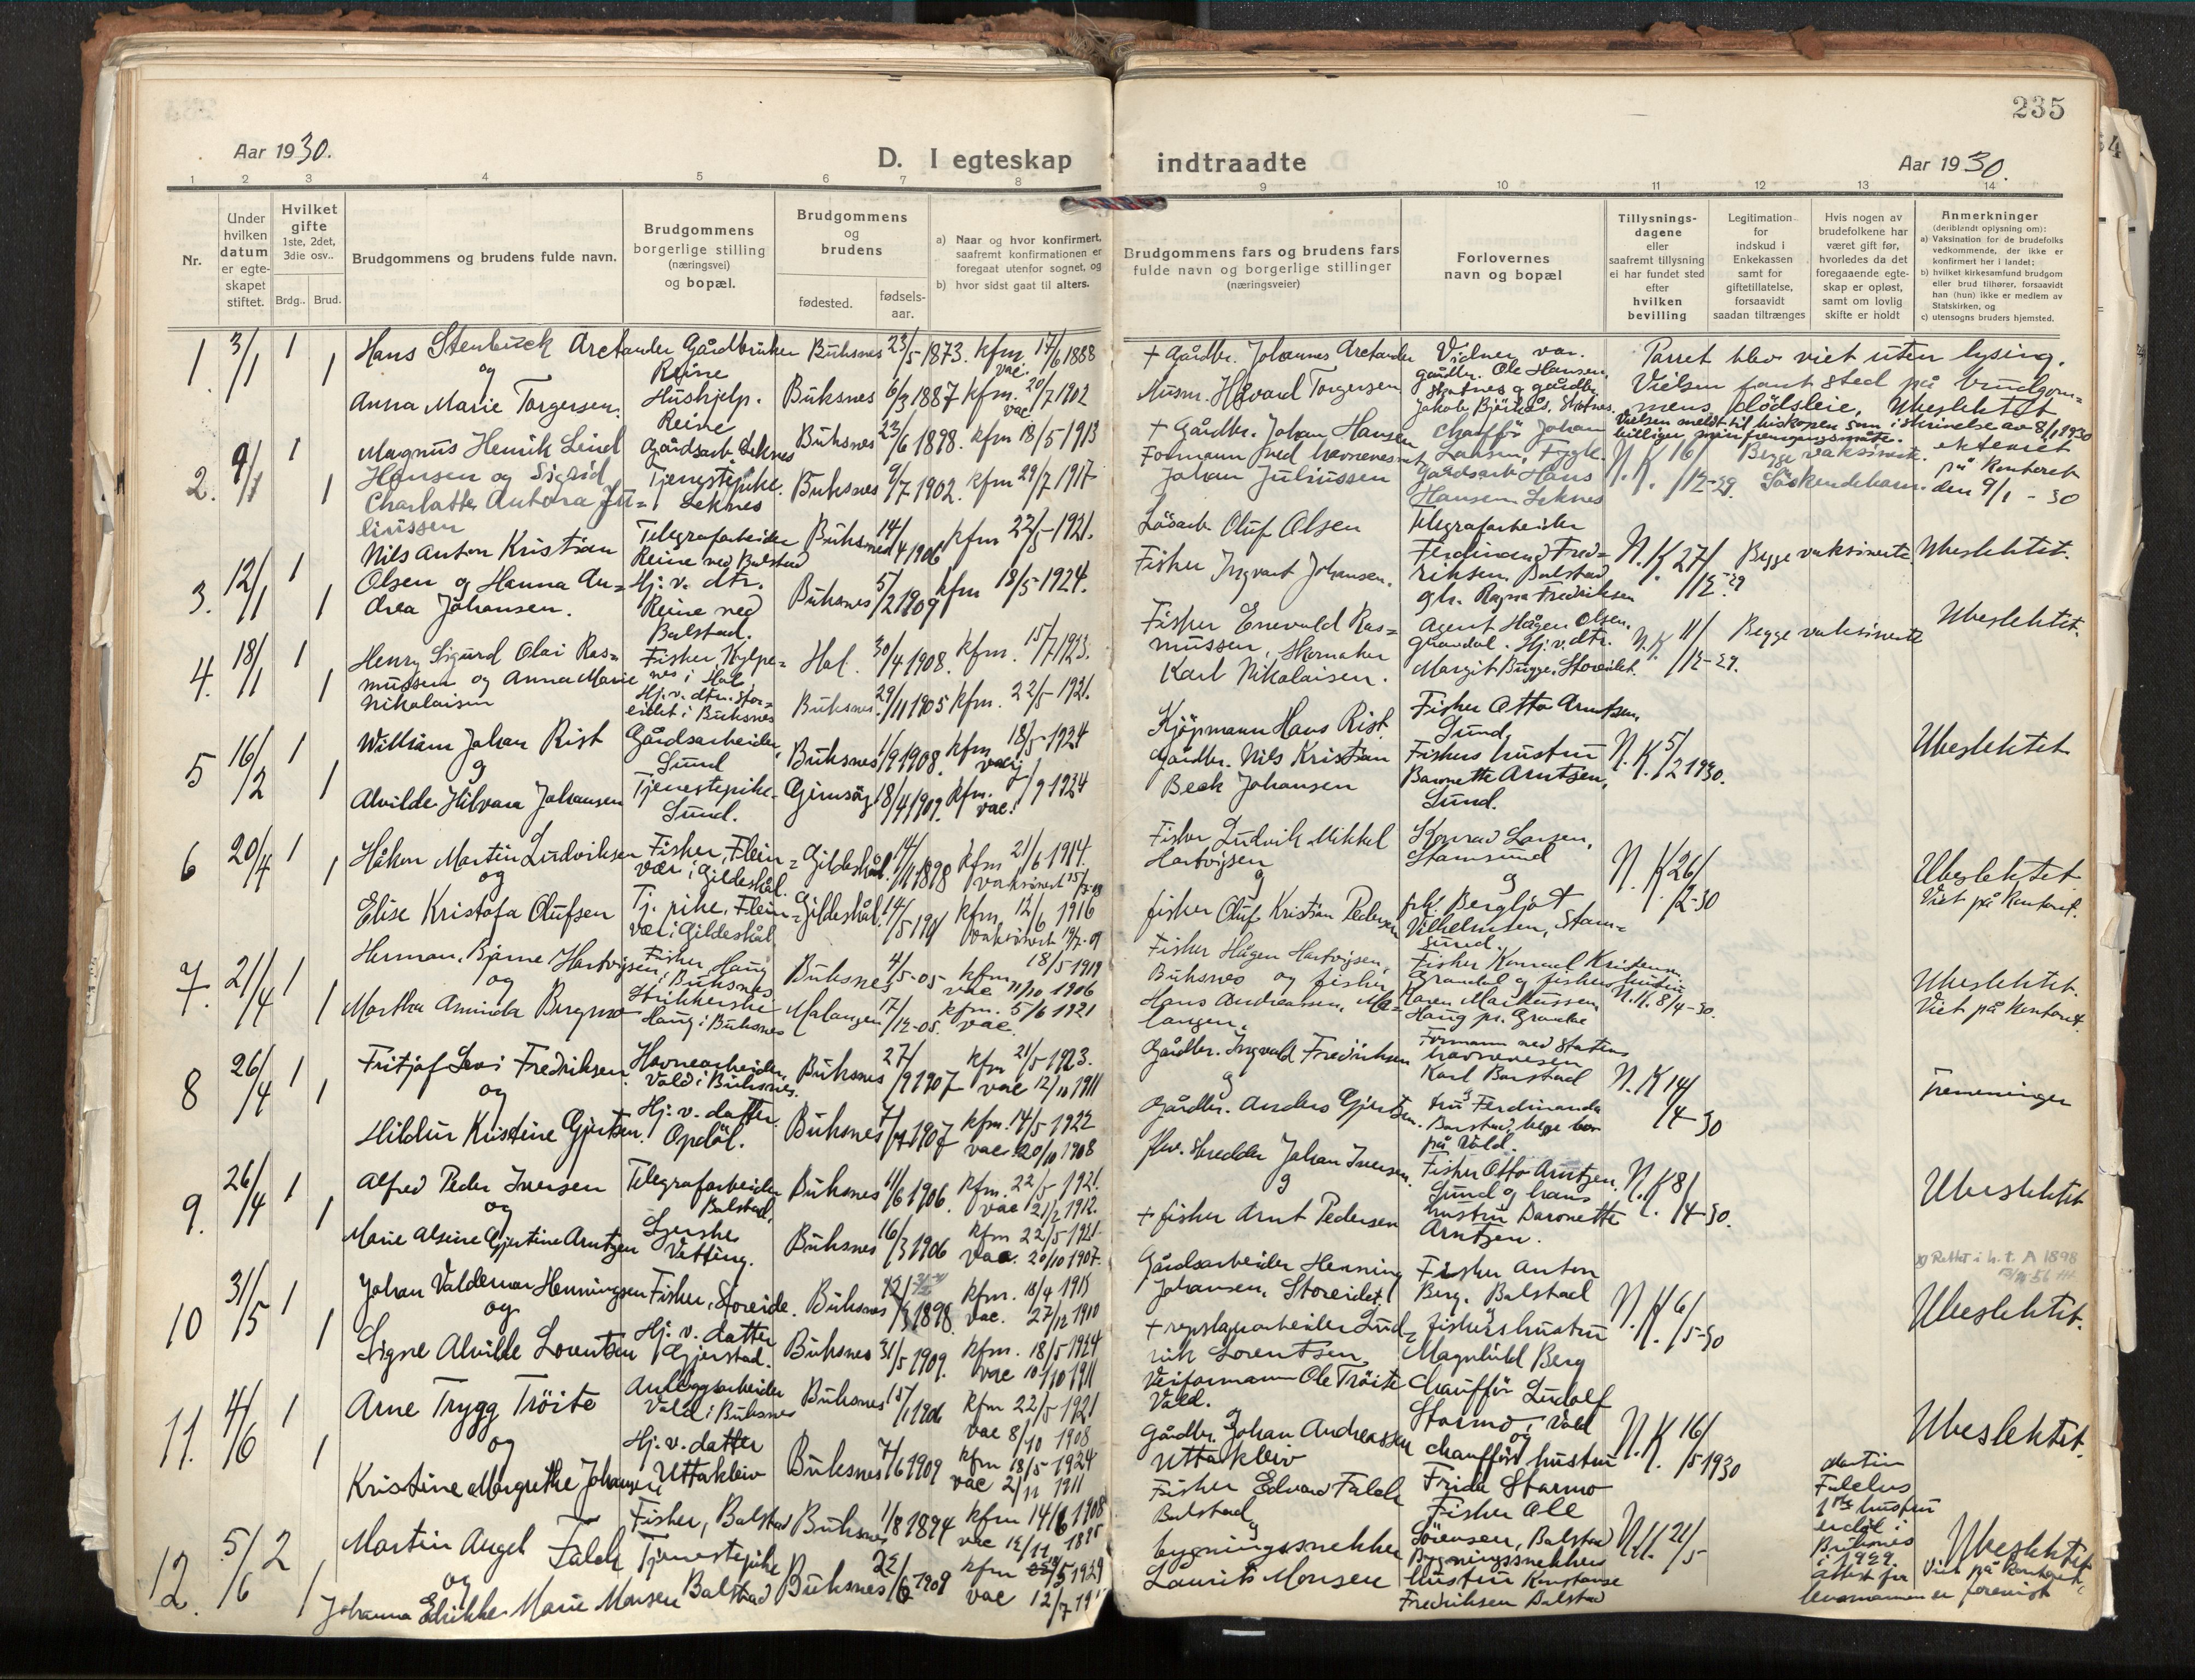 235
Aar 1930.
D. I egteskap
indtraadte
Aar 1930.
1 2 3 4 5 6 7 8
9 10 11 12 13 14
Nr.
Under hvilken datum er egte-skapet stiftet.
Hvilket gifte
1ste, 2det, 3die osv..
Brdg.. Brud.
Brudgommens og brudens fulde navn.
Brudgommens borgerlige stilling (næringsvei) og bopæl.
Brudgommens og brudens
fødested.
fødsels-aar.
a) Naar og hvor konfirmert, saafremt konfirmationen er foregaat utenfor sognet, og
b) hvor sidst gaat til alters.
Brudgommens fars og brudens fars fulde navn og borgerlige stillinger
(næringsveier)
Forlovernes navn og bopæl
Tillysnings-dagene eller saafremt tillysning ei har fundet sted efter hvilken bevilling
Legitimation for indskud i Enkekassen samt for giftetillatelse, forsaavidt saadan tiltrænges
Hvis nogen av brudefolkene har været gift før, hvorledes da det foregaaende egte-skap er opløst, samt om lovlig skifte er holdt
Anmerkninger
(deriblandt oplysning om):
a) Vaksination for de brudefolks vedkommende, der ikke er konfirmert her i landet;
b) hvilket kirkesamfund brudgom eller brud tilhører, forsaavidt han (hun) ikke er medlem av Statskirken, og
c) utensogns bruders hjemsted.
1. 3/1 1 1
Hans Stenbuck Arctander
og
Anna Marie Torgersen.
Gårdbruker
Reine
Hushjelp.
Reine
Buksnes 23/5 1873. kfm 17/6 1888
vac.
Buksnes 6/3 1887 kfm. 20/7 1902
vac
+ Gårdbr. Johannes Arctander
Husm. Håvard Torgersen
Vidner var.
gårdbr. Ole Hansen,
Skotnes og gårdbr.
Jakob Björkås, Skotnes.
Parret blev viet uten lysing.
Vielsen fant sted på brudgom=
mens dödsleie. Ubeslektet
Vielsen meldt til biskopen som i skrivelse av 8/1 1930
billiger min fremgangsmåte.
2. 9/1 1 1
Magnus Henrik Lind
Hansen og Sigrid
Charlotte Antora Ju=
liussen
Gårdsarb. Leknes
Tjenestepike.
Leknes
Buksnes 23/6 1898. kfm 18/5 1913
Buksnes 9/7 1902. kfm 29/7 1917
+ Gårdbr. Johan Hansen
Formann ved havnevesnet
Johan Juliussen
Chaufför Johan
Larsen, Fygle.
Gårdsarb. Hans
Hansen Leknes
N. K. 16/12-29.
Begge vaksinert.
Söskendebarn.
på kontoret
den 9/1 - 30
3. 12/1 1 1
Nils Anton Kristian
Olsen og Hanna An=
drea Johansen.
Telegrafarbeider
Reine ved Balstad
Hj. v. dtr.
Reine ved
Balstad.
Buksnes 14/4 1906 kfm 22/5-1921.
Buksnes 5/2 1909 kfm 18/5-1924.
Lösarb. Oluf Olsen
Fisker Ingvart Johansen.
Telegrafarbeider
Ferdinand Fred=
riksen Balstad
Ragna Fredriksen
N. K. 27/12-29
Begge vaksinerte
Ubeslektet.
4. 18/1 1 1
Henry Sigurd Olai Ras=
mussen og Anna Marie
Nikolaisen
Fisker, Kylpe=
nes i Hol
Hj. v. dtr. Stor=
eidet i Buksnes
Hol. 30/4 1908. kfm. 15/7 1923.
Buksnes. 29/11 1905 kfm. 22/5-1921.
Fisker Enevald Ras=
mussen, Skomaker
Karl Nikolaisen.
Agent Hågen Olsen,
Grandal. Hj. v. dtr.
Margit Bugge, Storeidet.
N. K. 11/12-29.
Begge vaksinerte
Ubeslektet.
5 16/2 1 1
William Johan Rist
og
Alvilde Hilvara Johansen
Gårdsarbeider,
Sund
Tjenestepike.
Sund.
Buksnes 1/9 1908. kfm 18/5-1924
Gimsöy 18/4 1909. kfm. 7/9 1924
vac.
Kjöpmann Hans Rist.
Gårdbr. Nils Kristian
Beck Johansen
Fisker Otto Arntsen,
Sund,
Fiskers hustru
Baronette Arntsen,
Sund.
N. K. 5/2 1930.
Ubeslektet
6 20/4 1 1
Håkon Martin Ludviksen
og
Elise Kristofa Olufsen
Fisker, Flein=
vær i Gildeskål.
Tj. pike, Flein=
vær i Gildeskål
Gildeskål 14/11 1898 kfm 21/6 1914.
Gildeskål. 14/5 1901 kfm 12/6 1916
Fisker Ludvik Mikkal
Hartvigsen
og
fisker Oluf Kristian Pedersen
Konrad Larsen,
Stamsund
og
frk. Bergljot
Vilhelmsen, Stam=
sund.
N. K. 26/2-30
Ubeslektet.
Viet på kontoret.
7. 21/4 1 1
Herman Bjarne Hartvigsen
og
Martha Aminda Bergmo
Fisker Haug
i Buksnes
Strikkerske
Haug i Buksnes
Buksnes 4/5-05 kfm 18/5 1919
vac 11/10 1906
Malangen 17/12-05 kfm. 5/6 1921
vac.
Fisker Hågen Hartvigsen,
Buksnes og fisker
Hans Andreassen, Ma=
langen.
Fisker Konrad Kristensen
Grandal og fiskers hustru
Haren Markussen
Haug pr. Gravdal
N. K. 8/4-30.
Ubeslektet.
Viet på kontoret.
8 26/4 1 1
Fritjof Levi Fredriksen
og
Hildur Kristine Gjertsen.
Havnearbeider,
Vold i Buksnes.
Hj. v. datter
Opdöl.
Buksnes 27/9 1907 kfm 21/5 1923.
vac 12/10 1911
Buksnes 7/7 1907 kfm. 14/5 1922
vac. 20/10 1908
Gårdbr. Ingvald Fredriksen
og
Gårdbr. Anders Gjertsen.
Formann ved Statens
havnevesen
Karl Barstad
og
fru Ferdinanda
Barstad, begge bor
på Vold.
N. K. 14/4-30
Tremenninger
9. 26/4 1 1
Alfred Peder Iversen
og
Marie Alseine Gjertine Arntzen
Telegrafarbeider
Balstad.
Syerske
Vetting.
Buksnes 11/6 1906. kfm. 22/5-1921.
vac 21/2 1912.
Buksnes 16/3 1906 kfm 22/5-1921.
vac. 20/10 1907.
Johan Iversen.
og
+ fisker Arnt Pedersen
Fisker Otto Arntzen.
Sund og hans
hustru Baronette
Arntzen.
N. K. 8/4-30.
Ubeslektet
10 31/5 1 1
Johan Valdemar Henningsen
og
Signe Alvilde Lorentsen
Fisker, Storeide.
Hj. v. datter
Gjerstad.
Buksnes 1898. kfm. 18/4 1915
vac. 27/12 1910
Buksnes 31/5 1909. kfm. 18/5-1924
vac 10/10 1911
Gårdsarbeider Henning
Johansen, Storeidet.
+ repslagerarbeider Lud=
vik Lorentsen
Fisker Anton
Berg, Balstad
og
fiskers hustru
Magnhild Berg
N. K. 6/5-30
Rettet i h. t. A 1898
Ubeslektet.
11. 4/6 1 1
Arne Trygg Tröite
og
Kristine Margrethe Johansen
Anleggsarbeider
Vold i Buksnes
Hj. v. datter
Uttakleiv
Buksnes 15/1 1906 kfm 22/5 1921
vac 8/10 1908
Buksnes 7/6 1909 kfm 18/5 1924
vac 2/11 1911
Veiformann Ole Tröite
Vold.
og
Gårdbr. Johan Andreassen
Uttakleiv
Chaufför Ludolf
Starmo, Vold
og
chaufförs hustru
Frida Starmo
N. K. 16/5 1930
Ubeslektet.
12. 5/6 2 1
Martin Angel Falch
og
Johanna Edrikke Marie Monsen
Fisker, Balstad
Tjenestepike
Balstad
Buksnes 1/8 1894 kfm 14/6 1908
vac 12/11 1895
Buksnes 22/6 1909 kfm 1929
vac 12/7
Fisker Edvard Falch
Balstad
og
bygningssnekker
Laurits Monsen
Fisker Ole
Sörensen, Balstad
Bygningssnekkers
hustru Konstanse
Fredriksen Balstad
N. K. 21/5
Martin
Falchs
1ste hustru
död i
Buksnes
i 1929
attest fra
er forevist
Ubeslektet
Viet på kontoret.